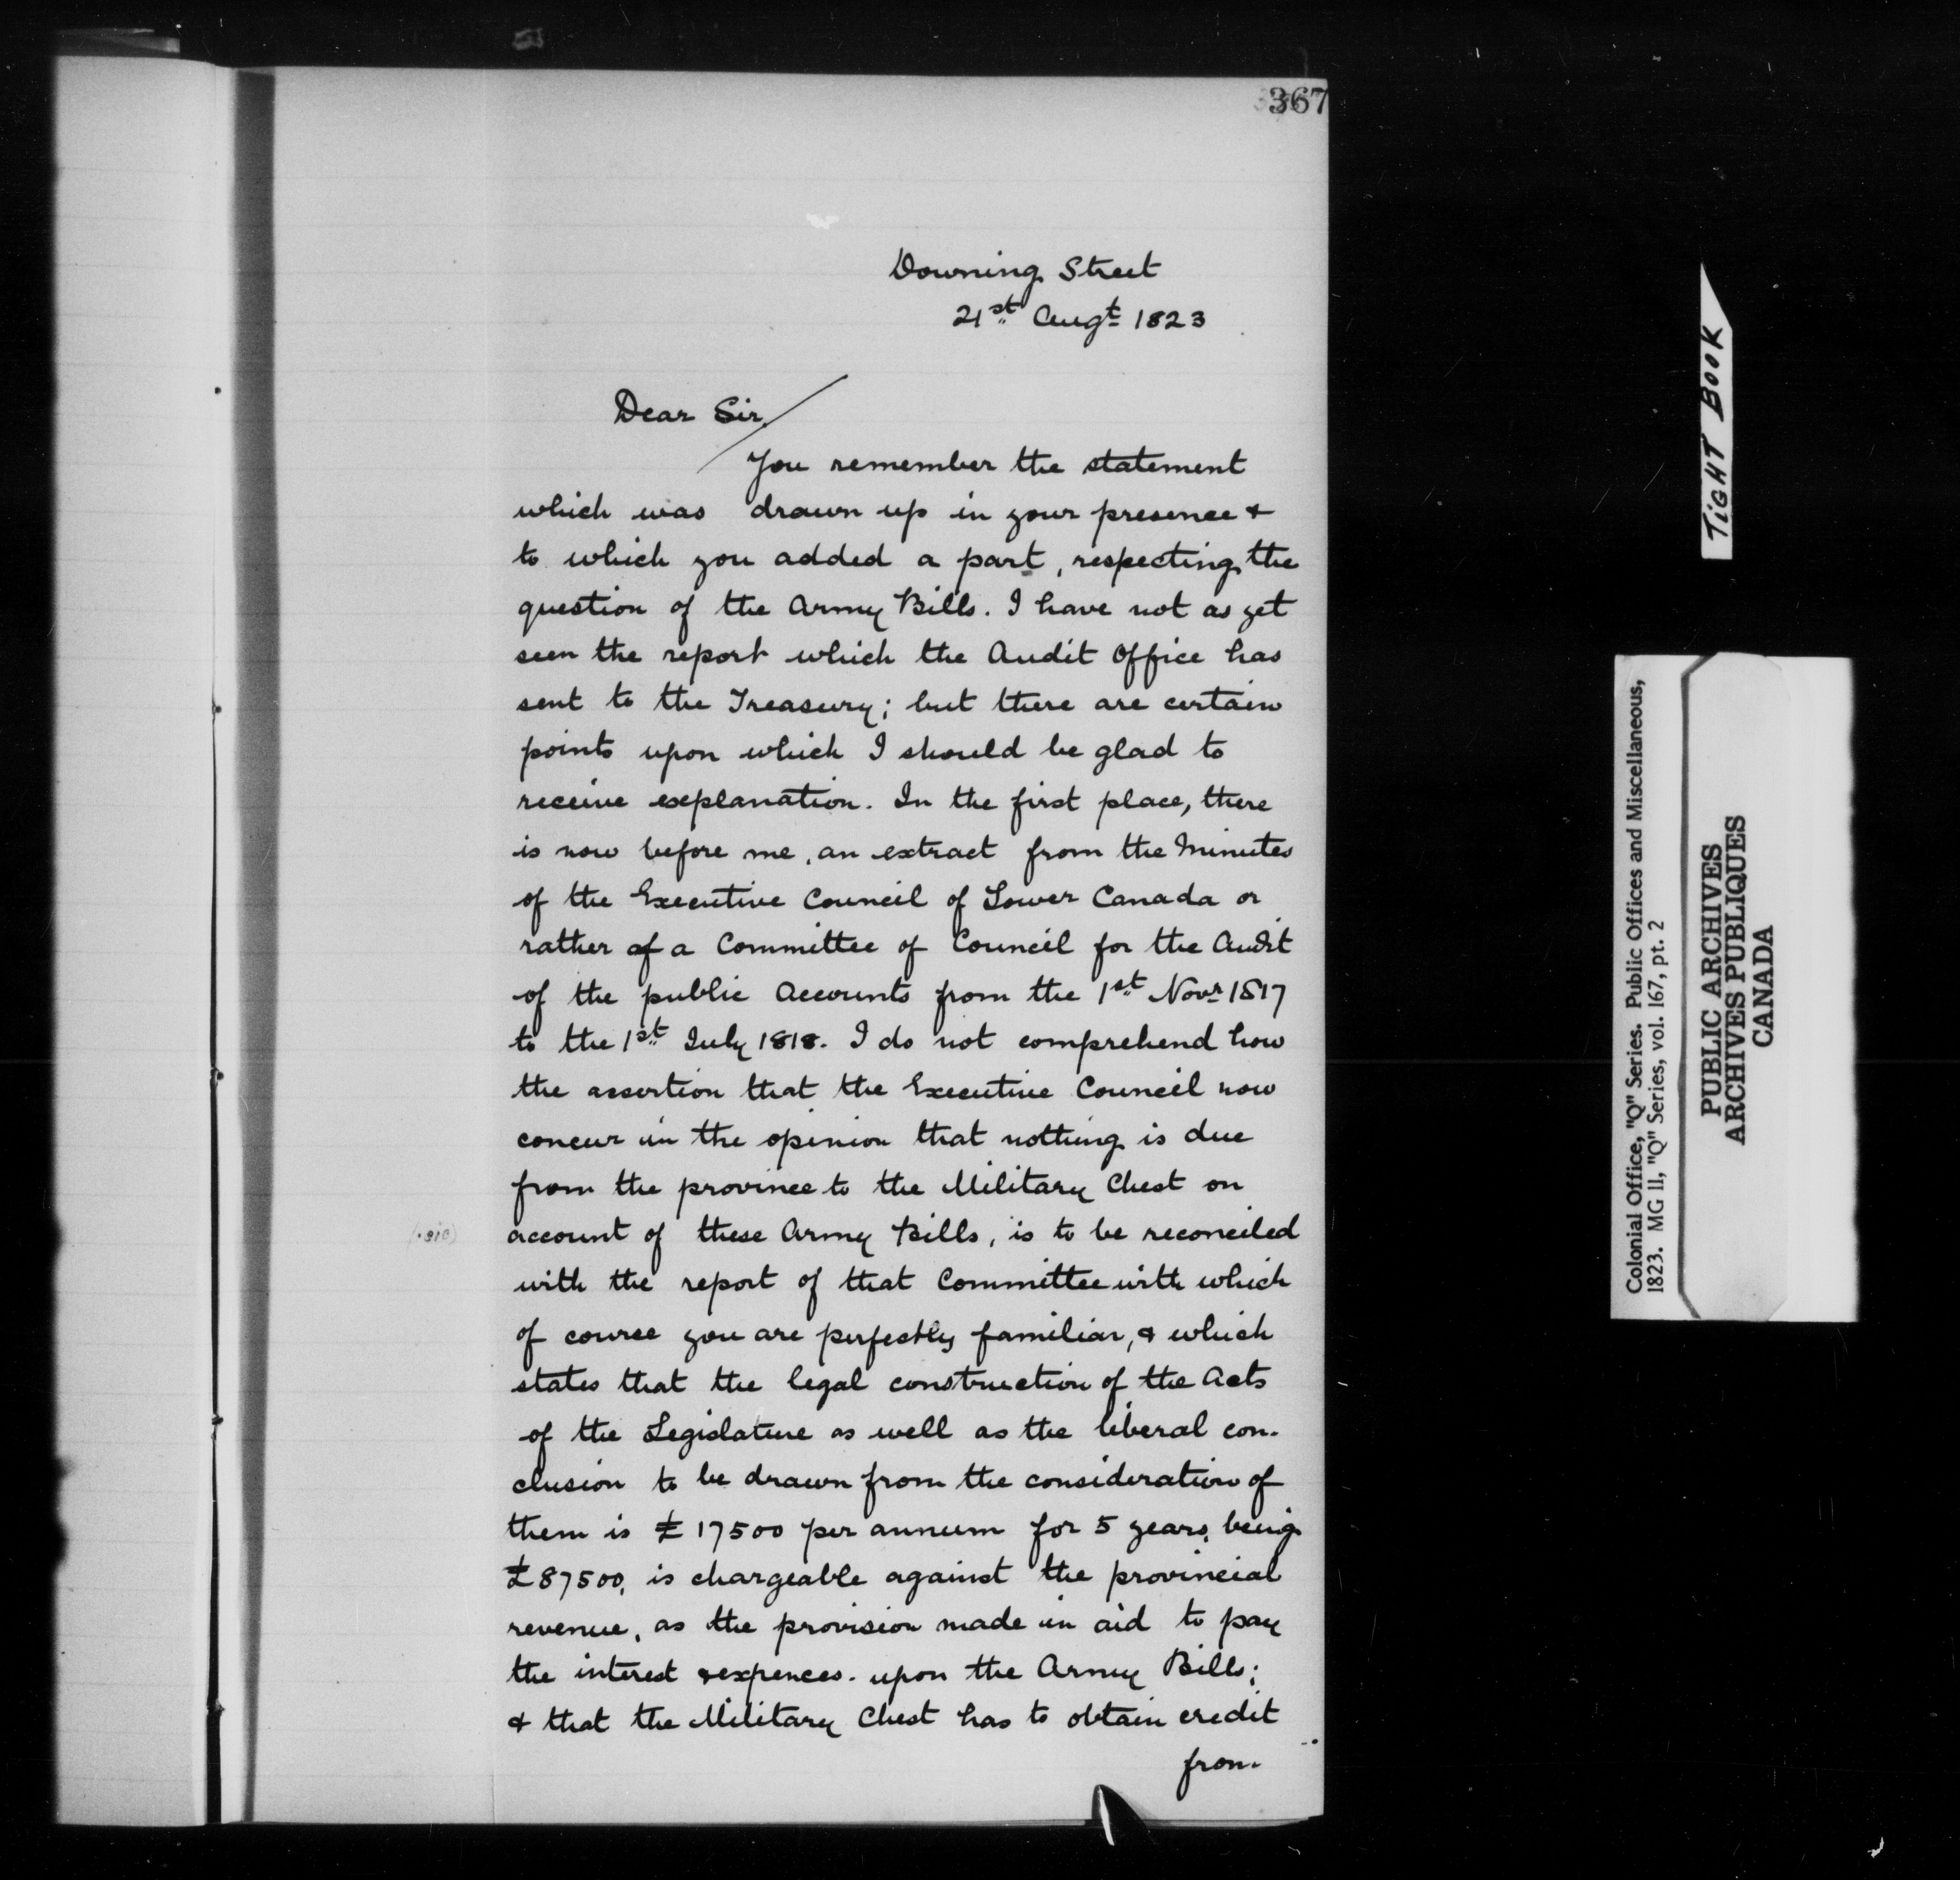 367
Downing Street
21st Augt 1823
Dear Sir,
You remember the statement
which was drawn up in your presence &
to which you added a part, respecting the
question of the Army Bills. I have not as yet
seen the report which the Audit Office has
sent to the Treasury; but there are certain
points upon which I should be glad to
receive explanation. In the first place, there
is now before me, an extract from the Minutes
of the Executive Council of Lower Canada or
rather of a Committee of Council for the Audit
of the public Accounts from the 1st Novr 1817
to the 1st July 1818. I do not comprehend how
the assertion that the Executive Council now
concur in the opinion that nothing is due
from the province to the Military Chest on
(sic)
account of these Army Bills, is to be reconciled
with the report of that Committee with which
of course you are perfectly familiar, & which
states that the legal construction of the Acts
of the Legislature as well as the liberal con-
clusion to be drawn from the consideration of
them is £17500 per annum for 5 years, being
£87500, is chargeable against the provincial
revenue, as the provision made in aid to pay
the interest & expences. upon the Army Bills;
& that the Military Chest has to obtain credit
from
TIGHT BOOK
Colonial Office, "Q" Series. Public Offices and Miscellaneous,
1823. MG 11, "Q" Series, vol. 167, pt. 2
PUBLIC ARCHIVES
ARCHIVES PUBLIQUES
CANADA